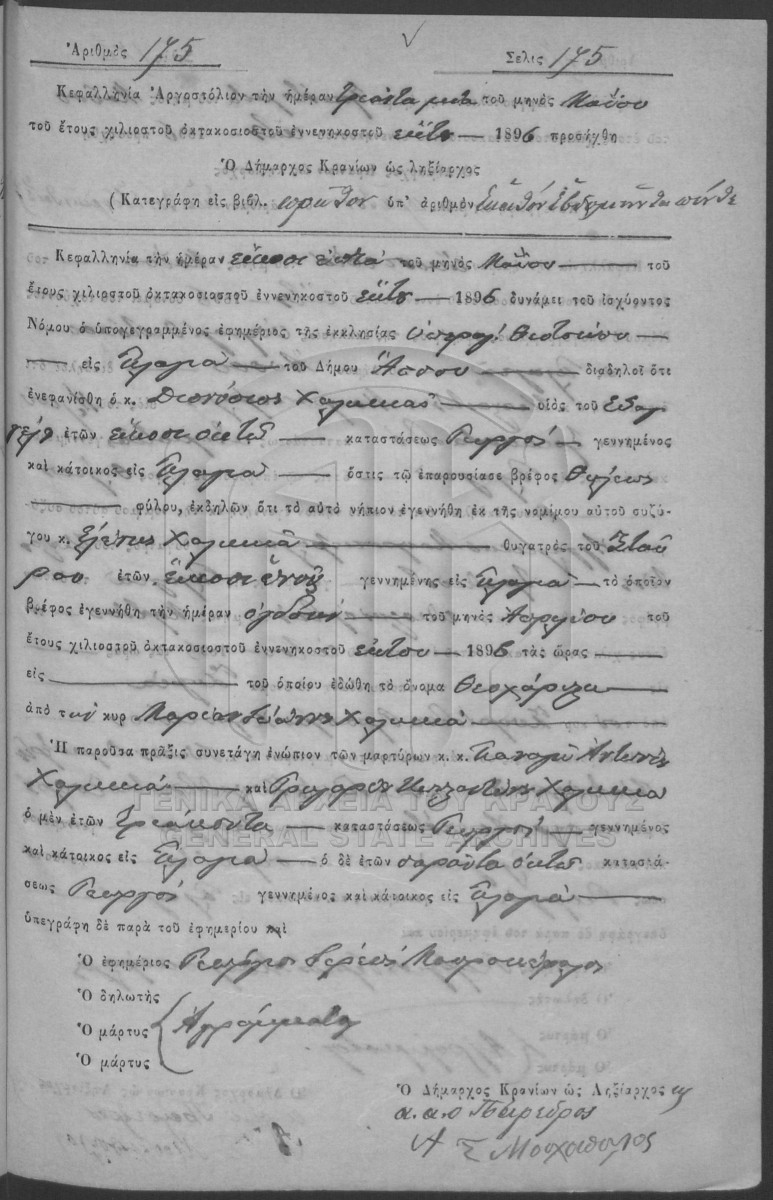 Ἀριθμὸς 175
Σελὶς 175
Κεφαλληνία Ἀργοστόλιον τὴν ἡμέραν τριάντα μία τοῦ μηνὸς Μαΐου
τοῦ ἔτους χιλιοστοῦ ὀκτακοσιοστοῦ ἐννενηκοστοῦ ἕκτου 1896 προσήχθη
Ὁ Δήμαρχος Κρανίων ὡς ληξίαρχος
(Κατεγράφη εἰς βιβλ. πρῶτον ὑπ' ἀριθμὸν Ἑκατὸν Ἑβδομῆντα πέντε
Κεφαλληνία τὴν ἡμέραν εἴκοσι ἑπτὰ τοῦ μηνὸς Μαΐου τοῦ
ἔτους χιλιοστοῦ ὀκτακοσιοστοῦ ἐννενηκοστοῦ ἕκτου 1896 δυνάμει τοῦ ἰσχύοντος
Νόμου ὁ ὑπογεγραμμένος ἐφημέριος τῆς ἐκκλησίας Θεοτόκου
εἰς τοῦ Δήμου διαδηλοῖ ὅτι
ἐνεφανίσθη ὁ κ. Διονύσιος Χαλικιάς υἱὸς τοῦ Εὐαγ
γέλη ἐτῶν εἴκοσι ὀκτὼ καταστάσεως Γεωργός γεννημένος
καὶ κάτοικος εἰς ὅστις τῷ ἐπαρουσίασε βρέφος θήλεως
φύλου, ἐκδηλῶν ὅτι τὸ αὐτὸ νήπιον ἐγεννήθη ἐκ τῆς νομίμου αὐτοῦ συζύ-
γου κ. Ἑλένης Χαλικιᾶ θυγατρὸς τοῦ Σταύ
ρου ἐτῶν εἴκοσι ἐννηᾶ γεννημένης εἰς τὸ ὁποῖον
βρέφος ἐγεννήθη τὴν ἡμέραν ὀγδόην τοῦ μηνὸς Ἀπριλίου τοῦ
ἔτους χιλιοστοῦ ὀκτακοσιοστοῦ ἐννενηκοστοῦ ἕκτου 1896 τὰς ὥρας
εἰς τοῦ ὁποίου ἐδώθη τὸ ὄνομα Θεοχάρηλα
ἀπὸ τὴν κυρ Μαρίαν Ἰωάννη Χαλικιά
Ἡ παροῦσα πρᾶξις συνετάγη ἐνώπιον τῶν μαρτύρων κ. κ. Παναγῆ Ἀντώνη
Χαλικιά καὶ Γρηγόρη Χαλικιά
ὁ μὲν ἐτῶν τριάκοντα καταστάσεως Γεωργός γεννημένος
καὶ κάτοικος εἰς ὁ δὲ ἐτῶν σαράντα ὀκτὼ καταστά-
σεως Γεωργός γεννημένος καὶ κάτοικος εἰς
ὑπεγράφη δὲ παρὰ τοῦ ἐφημερίου καὶ
Ὁ ἐφημέριος Γεράσιμος Ἱερεὺς Μαυροκέφαλος
Ὁ δηλωτὴς
Ὁ μάρτυς Ἀγράμματοι
Ὁ μάρτυς
Ὁ Δήμαρχος Κρανίων ὡς Ληξίαρχος
α.α.ο Πάρεδρος
Α Σ Μοσχόπουλος
ΓΕΝΙΚΑ ΑΡΧΕΙΑ ΤΟΥ ΚΡΑΤΟΥΣ
GENERAL STATE ARCHIVES